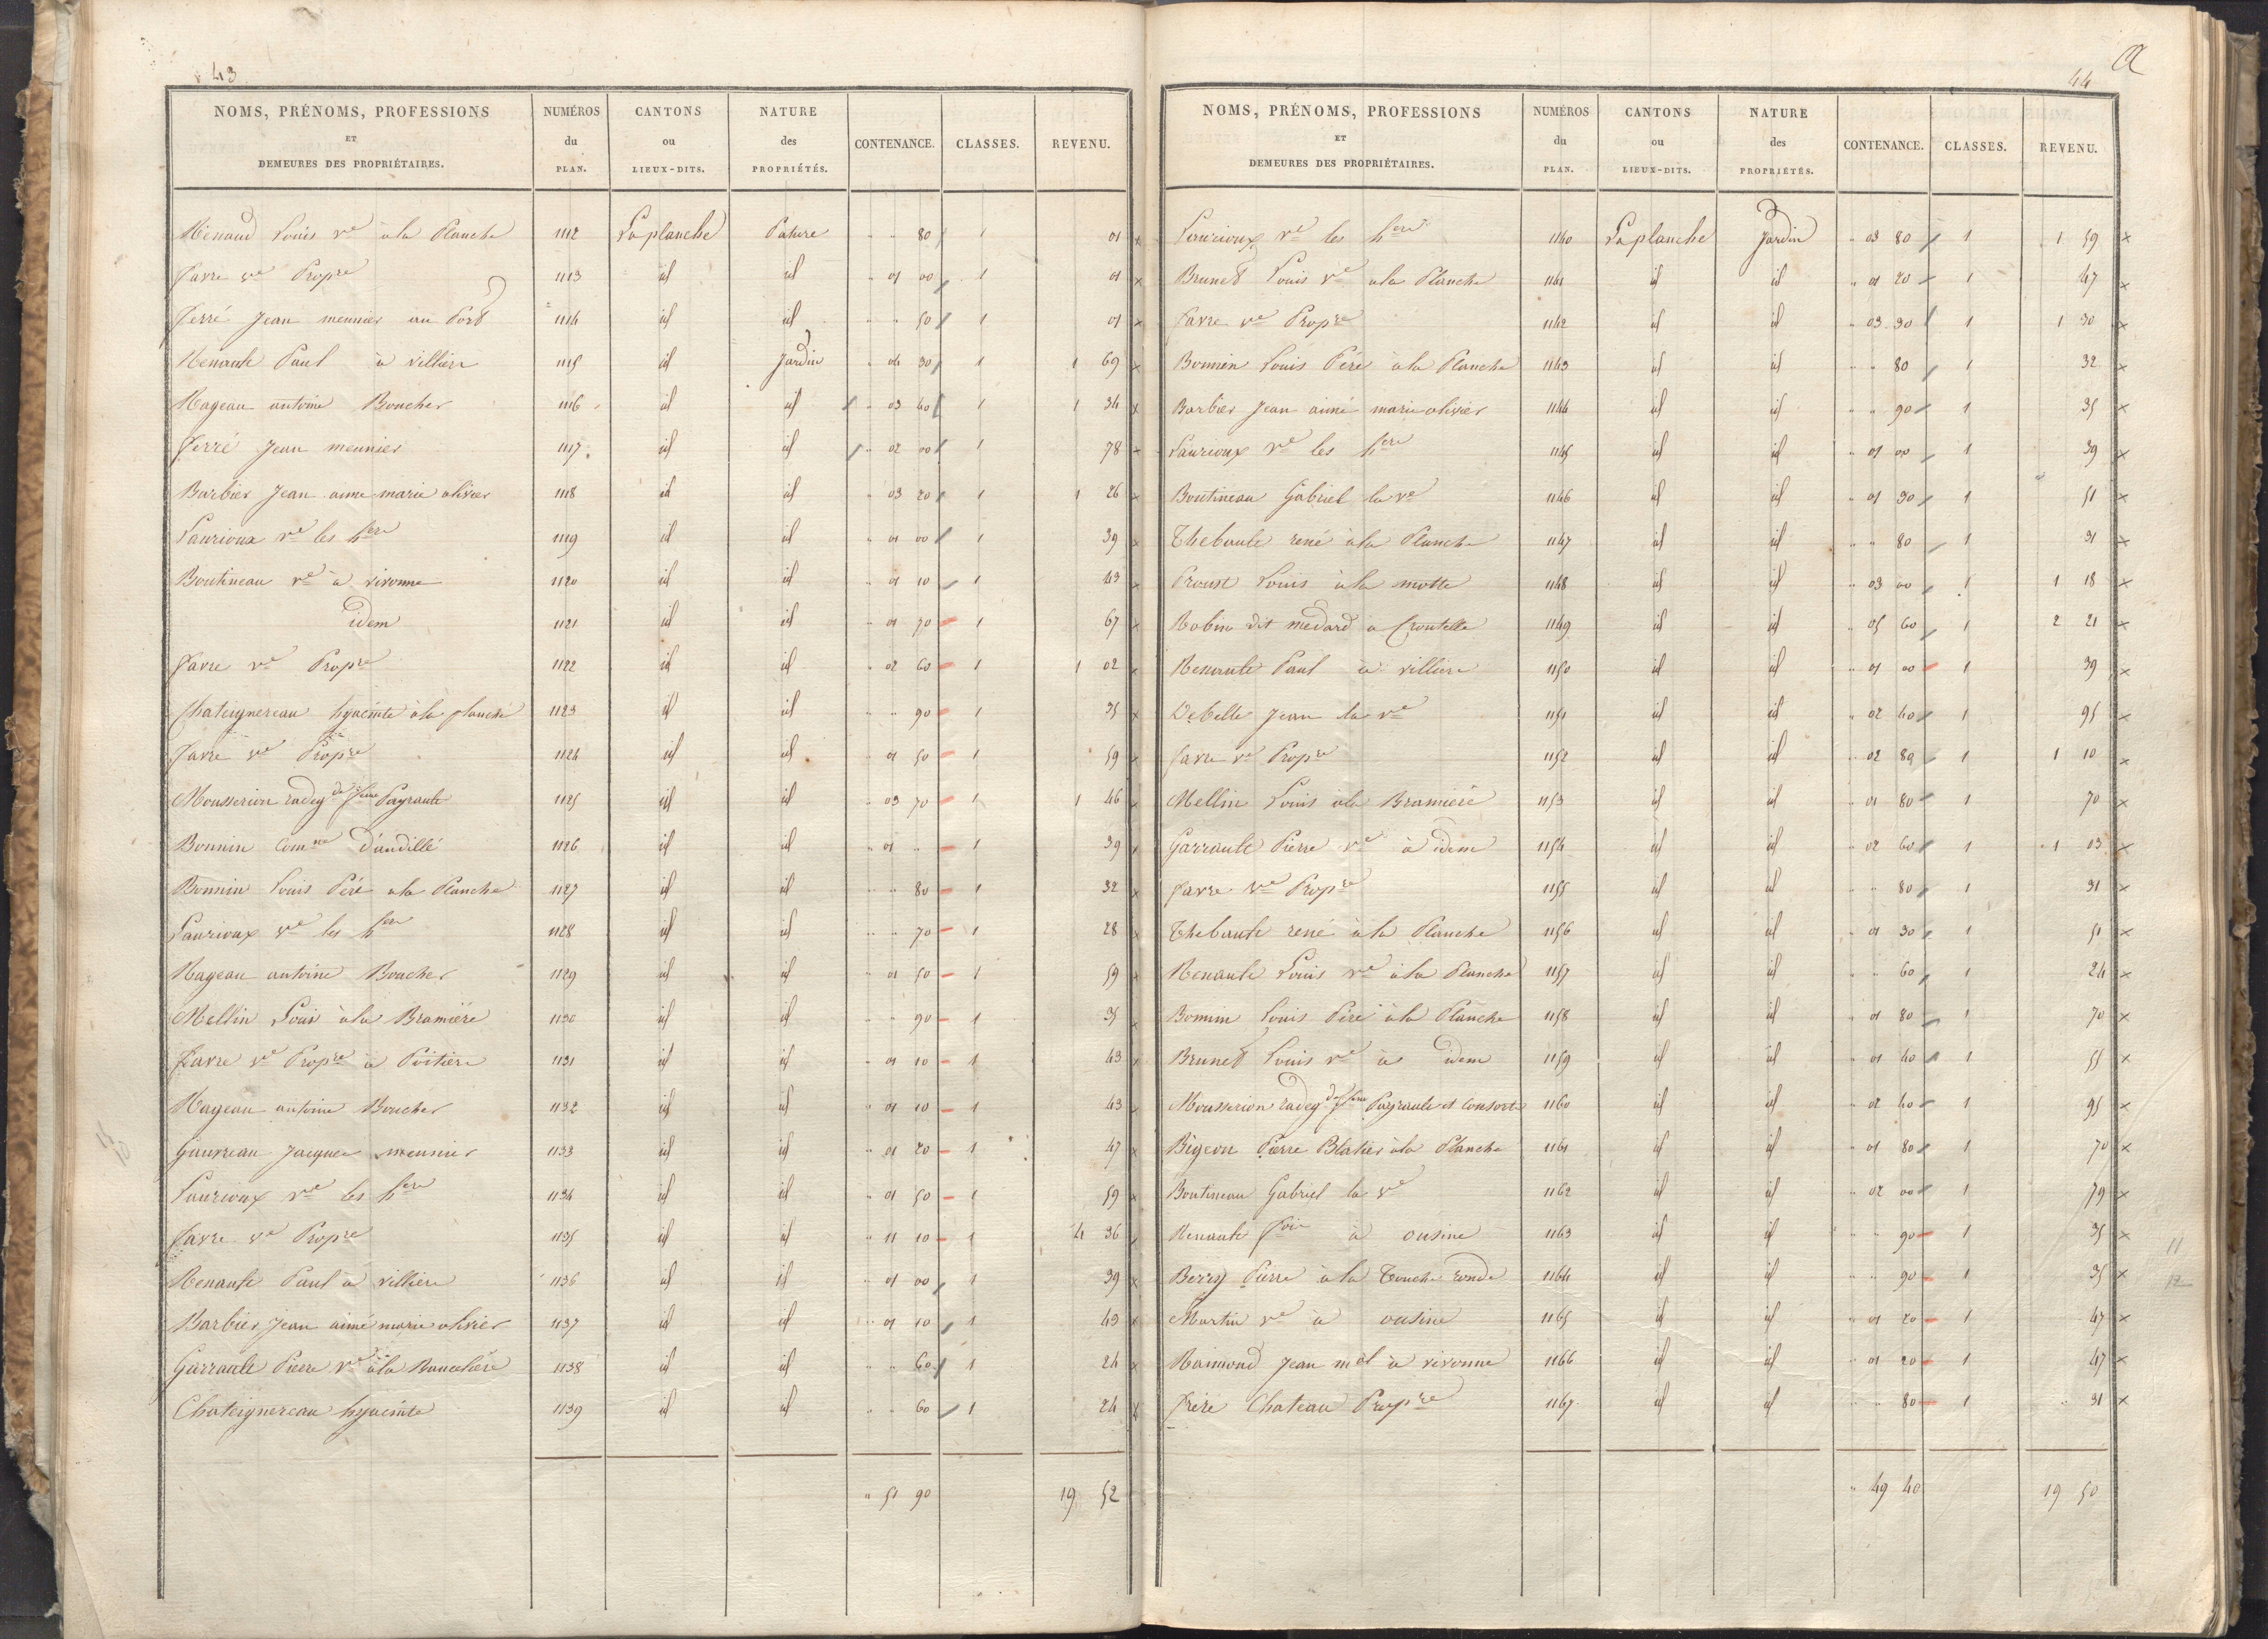 43
NOMS, PRÉNOMS, PROFESSIONS ET DEMEURES DES PROPRIÉTAIRES. NUMÉROS du PLAN. CANTONS ou LIEUX-DITS. NATURE des PROPRIÉTÉS. CONTENANCE. CLASSES. REVENU.
Renaud Louis ve à la Planche 1112 La planche Pature " " 80 1 01
Favre ve Propre 1113 id id " 01 00 1 01
Ferré Jean meunier au Port 1114 id id " " 50 1 01
Renault Paul à villiere 1115 id Jardin " 04 30 1 1 69
Rageau antoine Boucher 1116 id id " 03 40 1 1 34
Ferré Jean meunier 1117 id id " 02 00 1 78
Barbier Jean aime marie olivier 1118 id id " 03 20 1 1 26
Laurioux ve les hers 1119 id id " 01 00 1 39
Boutineau ve à vivonne 1120 id id " 01 10 1 43
idem 1121 id id " 01 70 1 67
Favre ve Propre 1122 id id " 02 60 1 1 02
Chateignereau hyacinte à la planche 1123 id id " " 90 1 35
Favre ve Propre 1124 id id " 01 50 1 59
Mousserion radegde fme Payrault 1125 id id " 03 70 1 1 46
Bonnin Comne d'andillé 1126 id id " 01 " 1 39
Bonnin Louis Pére a la Planche 1127 id id " " 80 1 32
Laurioux ve les hers 1128 id id " " 70 1 28
Rageau antoine Boucher 1129 id id " 01 50 1 59
Mellin Louis à la Bramière 1130 id id " " 90 1 35
Favre ve Propre à Poitiers 1131 id id " 01 10 1 43
Rageau antoine Boucher 1132 id id " 01 10 1 43
Gauvreau Jacques meunier 1133 id id " 01 20 1 47
Laurioux ve les hers 1134 id id " 01 50 1 59
Favre ve Propre 1135 id id " 11 10 1 4 36
Renault Paul à villiere 1136 id id " 01 00 1 39
Barbier Jean aimé marie olivier 1137 id id " 01 10 1 43
Garrault Pierre ve à la 1138 id id " " 60 1 24
Chateignereau hyacinte 1139 id id " " 60 1 24
" 51 90 19 52
44
NOMS, PRÉNOMS, PROFESSIONS ET DEMEURES DES PROPRIÉTAIRES. NUMÉROS du PLAN. CANTONS ou LIEUX-DITS. NATURE des PROPRIÉTÉS. CONTENANCE. CLASSES. REVENU.
Laurioux ve les hers 1140 La planche Jardin " 03 80 1 1 59 x
Brunet Louis ve a la Planche 1141 id id " 01 20 1 47 x
Favre ve Propre 1142 id id " 03 30 1 1 30 x
Bonnin Louis Pére à la Planche 1143 id id " " 80 1 32 x
Barbier Jean aimé marie olivier 1144 id id " " 90 1 35 x
Laurioux ve les hers 1145 id id " 01 00 1 39 x
Boutineau Gabriel la ve 1146 id id " 01 30 1 51 x
Thebault rené à la Planche 1147 id id " " 80 1 31 x
Proust Louis à la motte 1148 id id " 03 00 1 1 18 x
Robin dit medard a Croutelle 1149 id id " 05 60 1 2 21 x
Renault Paul à villiere 1150 id id " 01 00 1 39 x
Debelle Jean la ve 1151 id id " 02 40 1 95 x
Favre ve Propre 1152 id id " 02 80 1 1 10 x
Mellin Louis à la Bramière 1153 id id " 01 80 1 70 x
Garrault Pierre ve à idem 1154 id id " 02 60 1 1 03 x
Favre ve Propre 1155 id id " " 80 1 31 x
Thebault rené à la Planche 1156 id id " 01 30 1 51 x
Renault Louis ve à la Planche 1157 id id " " 60 1 24 x
Bonnin Louis Pére à la Planche 1158 id id " 01 80 1 70 x
Brunet Louis ve à idem 1159 id id " 01 40 1 55 x
Mousserion radegde fme Payrault et Consorts 1160 id id " 02 40 1 95 x
Bigeon Pierre Blatier à la Planche 1161 id id " 01 80 1 70 x
Boutineau Gabriel la ve 1162 id id " 02 00 1 79 x
Renault fois à ousine 1163 id id " " 90 1 35 x
Berry Pierre à la Touche ronde 1164 id id " " 90 1 35 x
Martin ve à ousine 1165 id id " 01 20 1 47 x
Raimond Jean md à vivonne 1166 id id " 01 20 1 47 x
Frére Chateau Propre 1167 id id " " 80 1 " 31 x
" 49 40 19 50
11
12